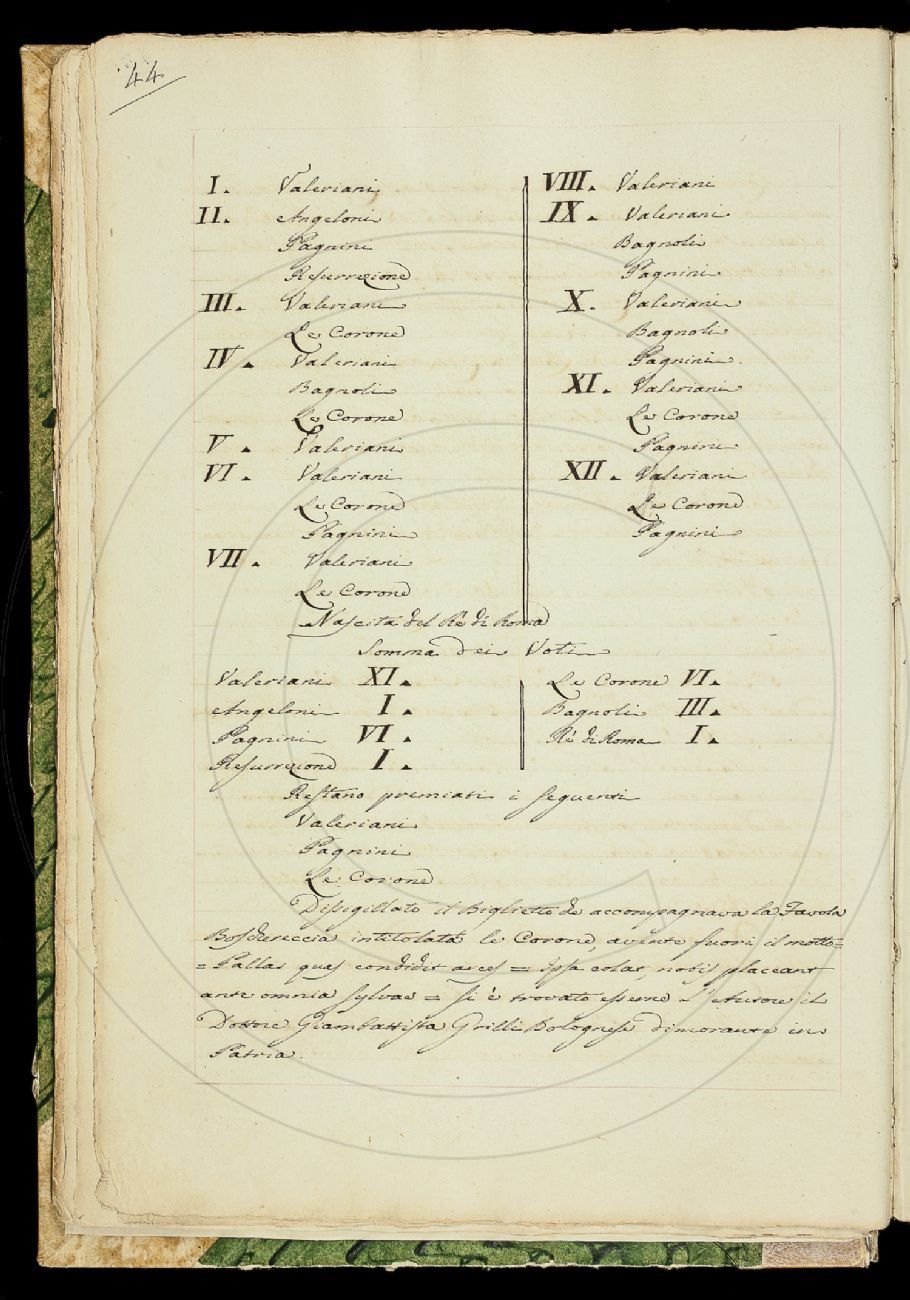 44
I. Valeriani
II. Angeloni
Pagnini
Resurrezione
III. Valeriani
Le Corone
IV. Valeriani
Bagnoli
Le Corone
V. Valeriani
VI. Valeriani
Le Corone
Pagnini
VII. Valeriani
Le Corone
Nascita del Rè di Roma
VIII. Valeriani
IX. Valeriani
Bagnoli
Pagnini
X. Valeriani
Bagnoli
Pagnini.
XI. Valeriani
Le Corone
Pagnini
XII. Valeriani
Le Corone
Pagnini
Somma dei Voti
Valeriani XI.
Angeloni I.
Pagnini VI.
Resurrezione I.
Le Corone VI.
Bagnoli III.
Rè di Roma I.
Restano premiati i seguenti
Valeriani
Pagnini
Le Corone
Disigillato il Biglietto che accompagnava la Favola
Boschereccia intitolata le Corone, avente fuori il motto=
=Pallas quas condidit arces = Ipsa colat, nobis placeant
ante omnia sylvae = si è trovato esserne l'Autore il
Dottore Giambattista Grilli Bolognese dimorante in
Patria.